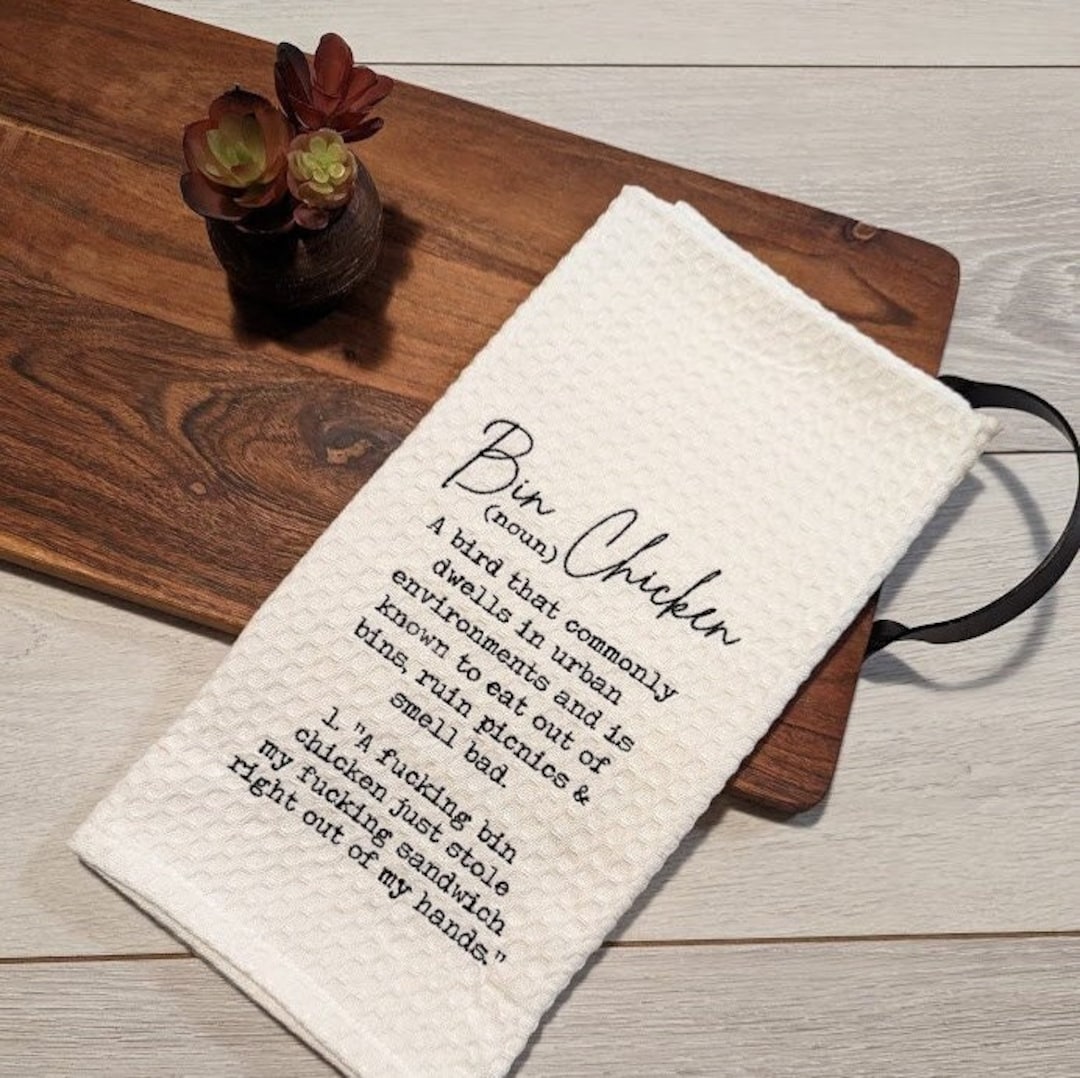 Bin Chicken
(noun)
A bird that commonly
dwells in urban
environments and is
known to eat out of
bins, ruin picnics &
smell bad.
1. "A fucking bin
chicken just stole
my fucking sandwich
right out of my hands."